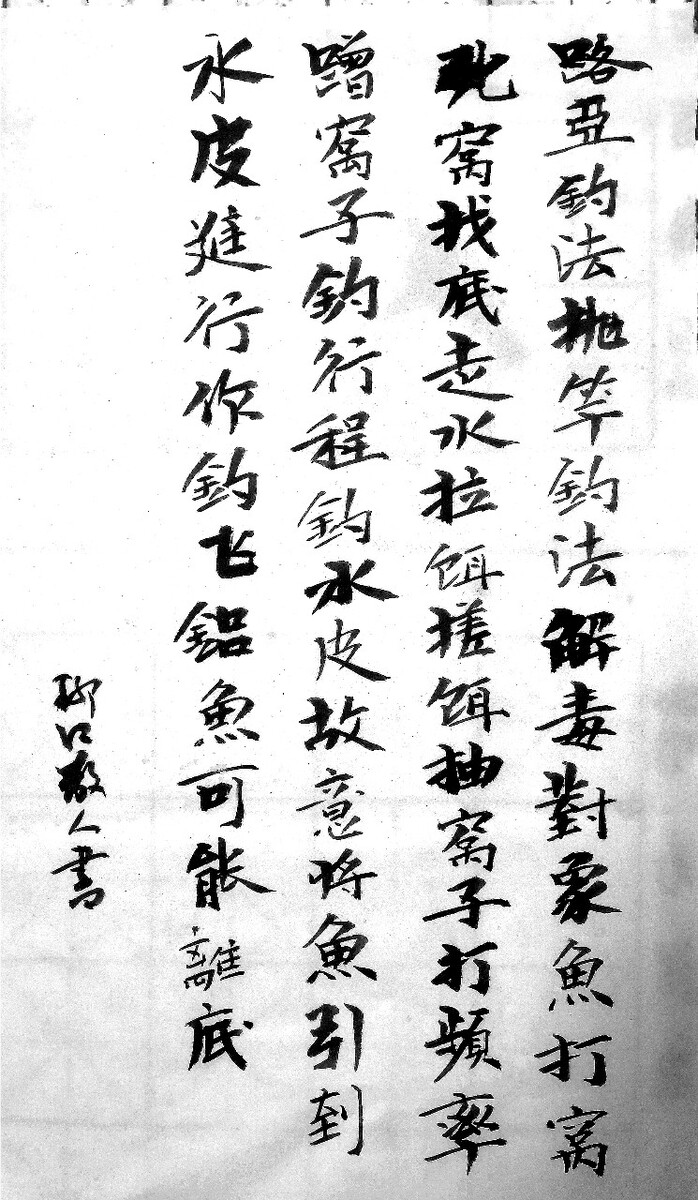 路亞釣法拋竿釣法解毒對象魚打窩
死窩找底走水拉餌搓餌抽窩子打頻率
蹭窩子釣行程釣水皮故意將魚引到
水皮進行作釣飞鉛魚可能離底
柳散人書